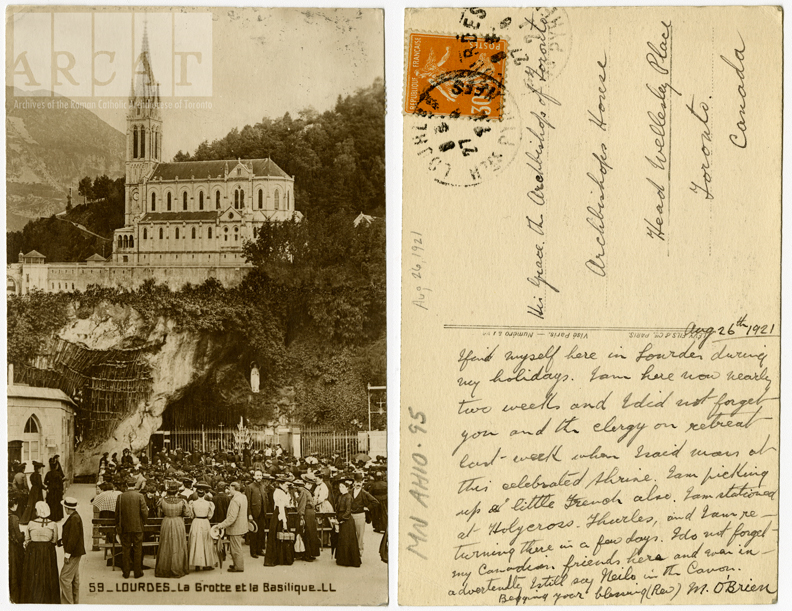 ARCAT
Archives of the Roman Catholic Archdiocese of Toronto
59_LOURDES_La Grotte et la Basilique_LL
POSTES
30
LOURDES
His Grace the Archbishop of Toronto
Archbishops House
Head Wellesley Place
Toronto.
Canada
Aug 26, 1921
MN AH10.95
Aug 26th 1921
I find myself here in Lourdes during
my holidays. I am here now nearly
two weeks and I did not forget
you and the clergy on retreat
last week when I said mass at
this celebrated shrine. I am picking
up a little French also. I am stationed
at Holycross. Thurles, and I am re-
turning there in a few days. I do not forget
my Canadian friends here and even in-
advertently still say Neilo in the Canon.
Begging your blessing (Rev) M. O'Brien